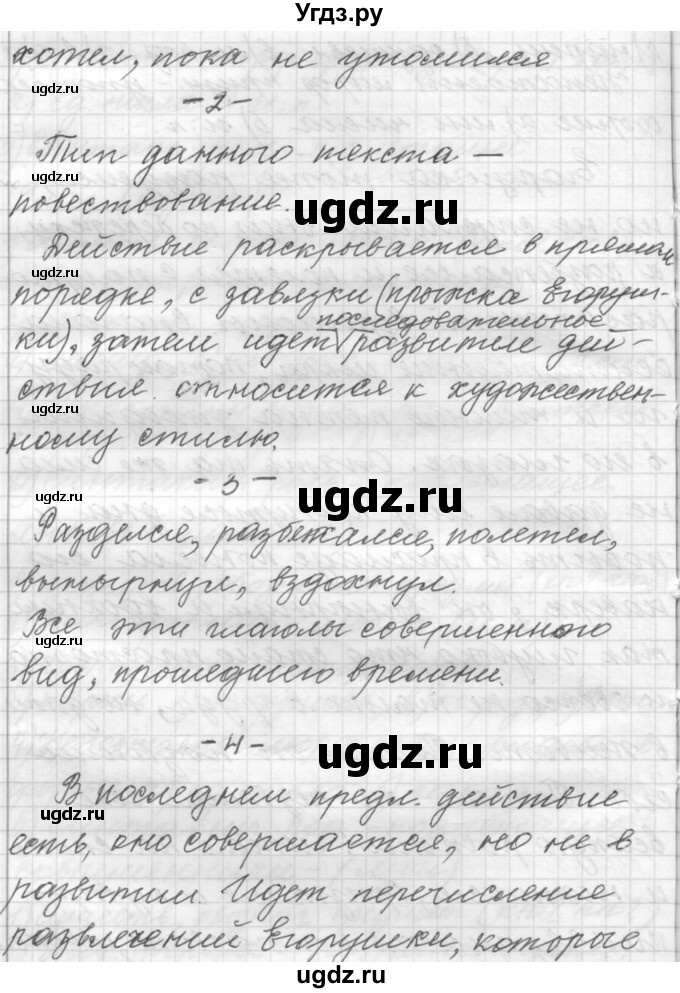 Угдз.ру
хотел, пока не утомился
ugdz.ru
-2-
Тип данного текста —
ugdz.ru
ugdz.ru
повествование.
Действие раскрывается в прямом
ugdz.ru
порядке, с завязки (прыжка Егоруш-
последовательное
ки), затем идет развитие дей-
ствия. относится к художествен-
ному стилю.
ugdz.ru
-3-
ugdz.ru
Разделся, разбежался, полетел,
вынырнул, вздохнул.
Все эти глаголы совершенного
ugdz.ru
вид, прошедшего времени.
-4-
ugdz.ru
В последнем предл. действие
ugdz.ru
есть, оно совершается, но не в
развитии. Идет перечисление
развлечений Егорушки, которые
ugdz.ru